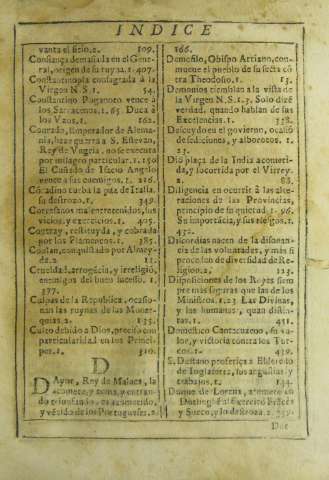 INDICE
vanta el sitio.2. 109.
Constança demasiada en el Gene-
ral, origen de su ruyna. 1. 407.
Constantinopla consagrada à la
Virgen N.S. 1. 54.
Constantino Paganoto vence à
los Sarracenos. 1. 65. Duca à
los Uzos. 1. 162.
Conrado, Emperador de Alema-
nia, haze guerra à S. Estevan,
Rey de Vngria, no se executa
por milagro particular. 1. 150
El Cuñado de Isacio Angelo
vence à sus enemigos. 1. 226.
Coradino turba la paz de Italia.
su destrozo. 1. 349.
Corvesanos mal entretenidos, los
vicios, mayores. 1. 405.
Contray, restituyda, y cobrada
por los Flamencos. 1. 385.
Ceylan, conquistado por Almey-
da. 2. 12.
Crueldad, arrogãcia, y irreligiõ,
enemigos del buen sucesso. 1.
377.
Culpas de la Republica, ocasio-
nan las ruynas de las Monar-
quias. 2. 135.
Culto debido à Dios, preciso con
particularidad en los Princi-
pes. 1. 310.
D
DAynr, Rey de Malaca, la
aconete, y toma, y entran-
do triunfando, es acometido,
y vécido de los Portugueses. 2.
166.
Demofilo, Obispo Arriano, con-
mueve el pueblo de su secta cõ
tra Theodosio. 1. 13.
Demonios tiemblan à la vista de
la Virgen N.S. 1. 3. Solo dizé
verdad, quando hablan de sus
Excelencias. 1. 338.
Descuydo en el govierno, ocasiõ
de sediciones, y alborotos. 1.
23.
Diò plaça de la India acometi-
da, y socorrida por el Virrey.
2. 88.
Diligencia en ocurrir à las alte-
raciones de las Provincias,
principio de su quietud. 1. 96.
Su importancia, y sus riesgos. 1.
472.
Discordias nacen de la disonan-
cia de las voluntades, y mas si
proceden de diversidad de Re-
ligion. 2. 123.
Disposiciones de los Reyes siem
pre mas seguras que las de los
Ministros. 1. 23 Las Divinas,
y las humanas, quan distin-
tas. 1. 451.
Domestico Cantacuzeno, su va-
lor, y victoria contra los Tur-
cos. 1. 439.
S. Dustano profetiça à Elderedo
de Inglaterra, sus angustias, y
trabajos. 1. 144.
Duque de Lorena, acomete en
el Exercito Frãcés
y Sueco, y lo destroza. 2. 259.
Du-